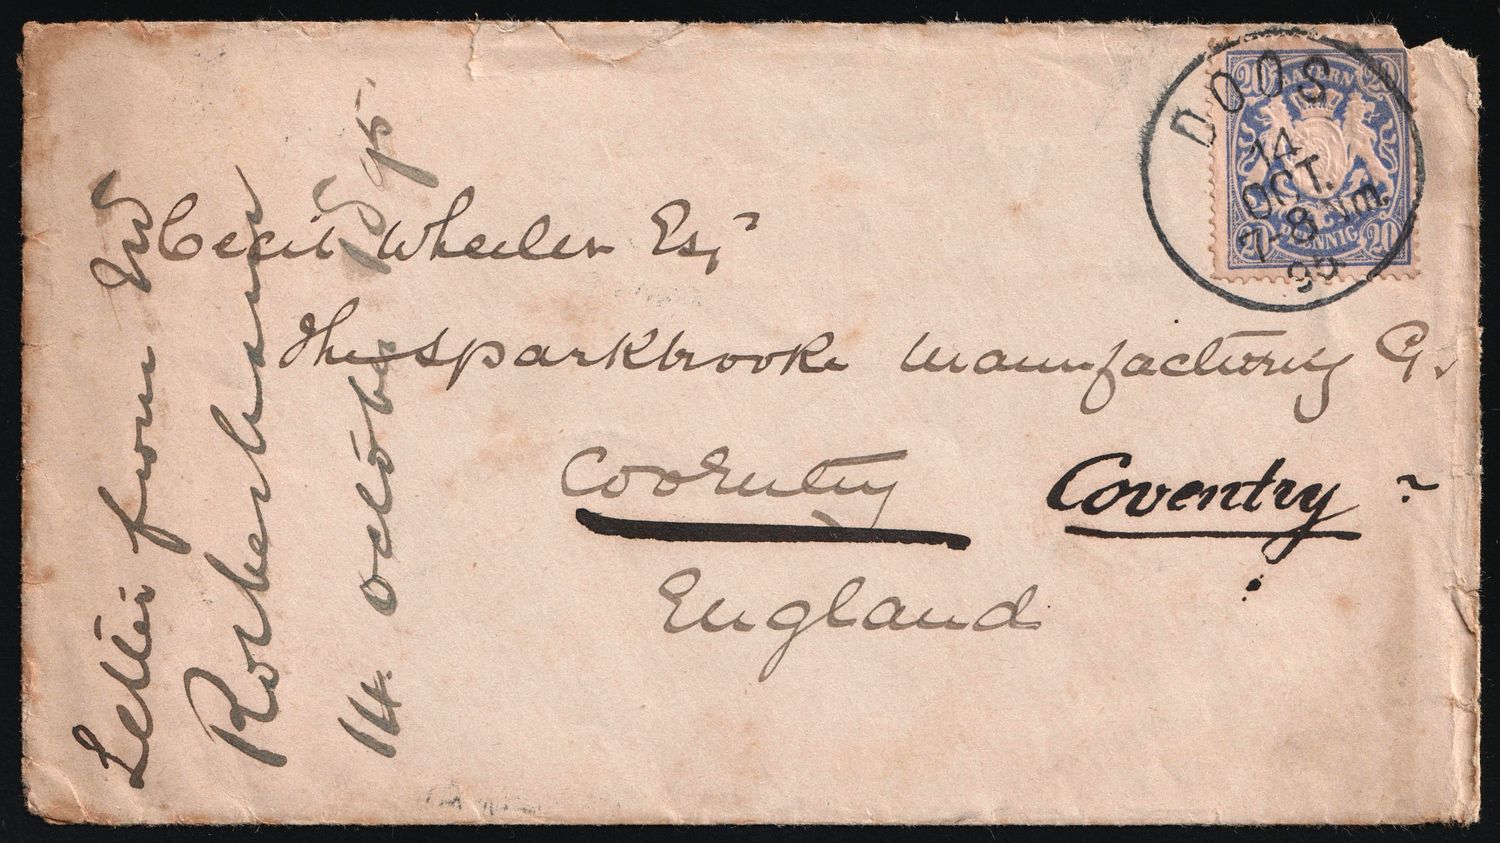 20 BAYERN 20
20 PFENNIG 20
DOOS
14
OCT.
7-8 Nm.
95
Cecil Wheeler Esqr
The Sparkbrooke Manufacturing Co
Coventry
Coventry
England
Letter from
14 October 1895